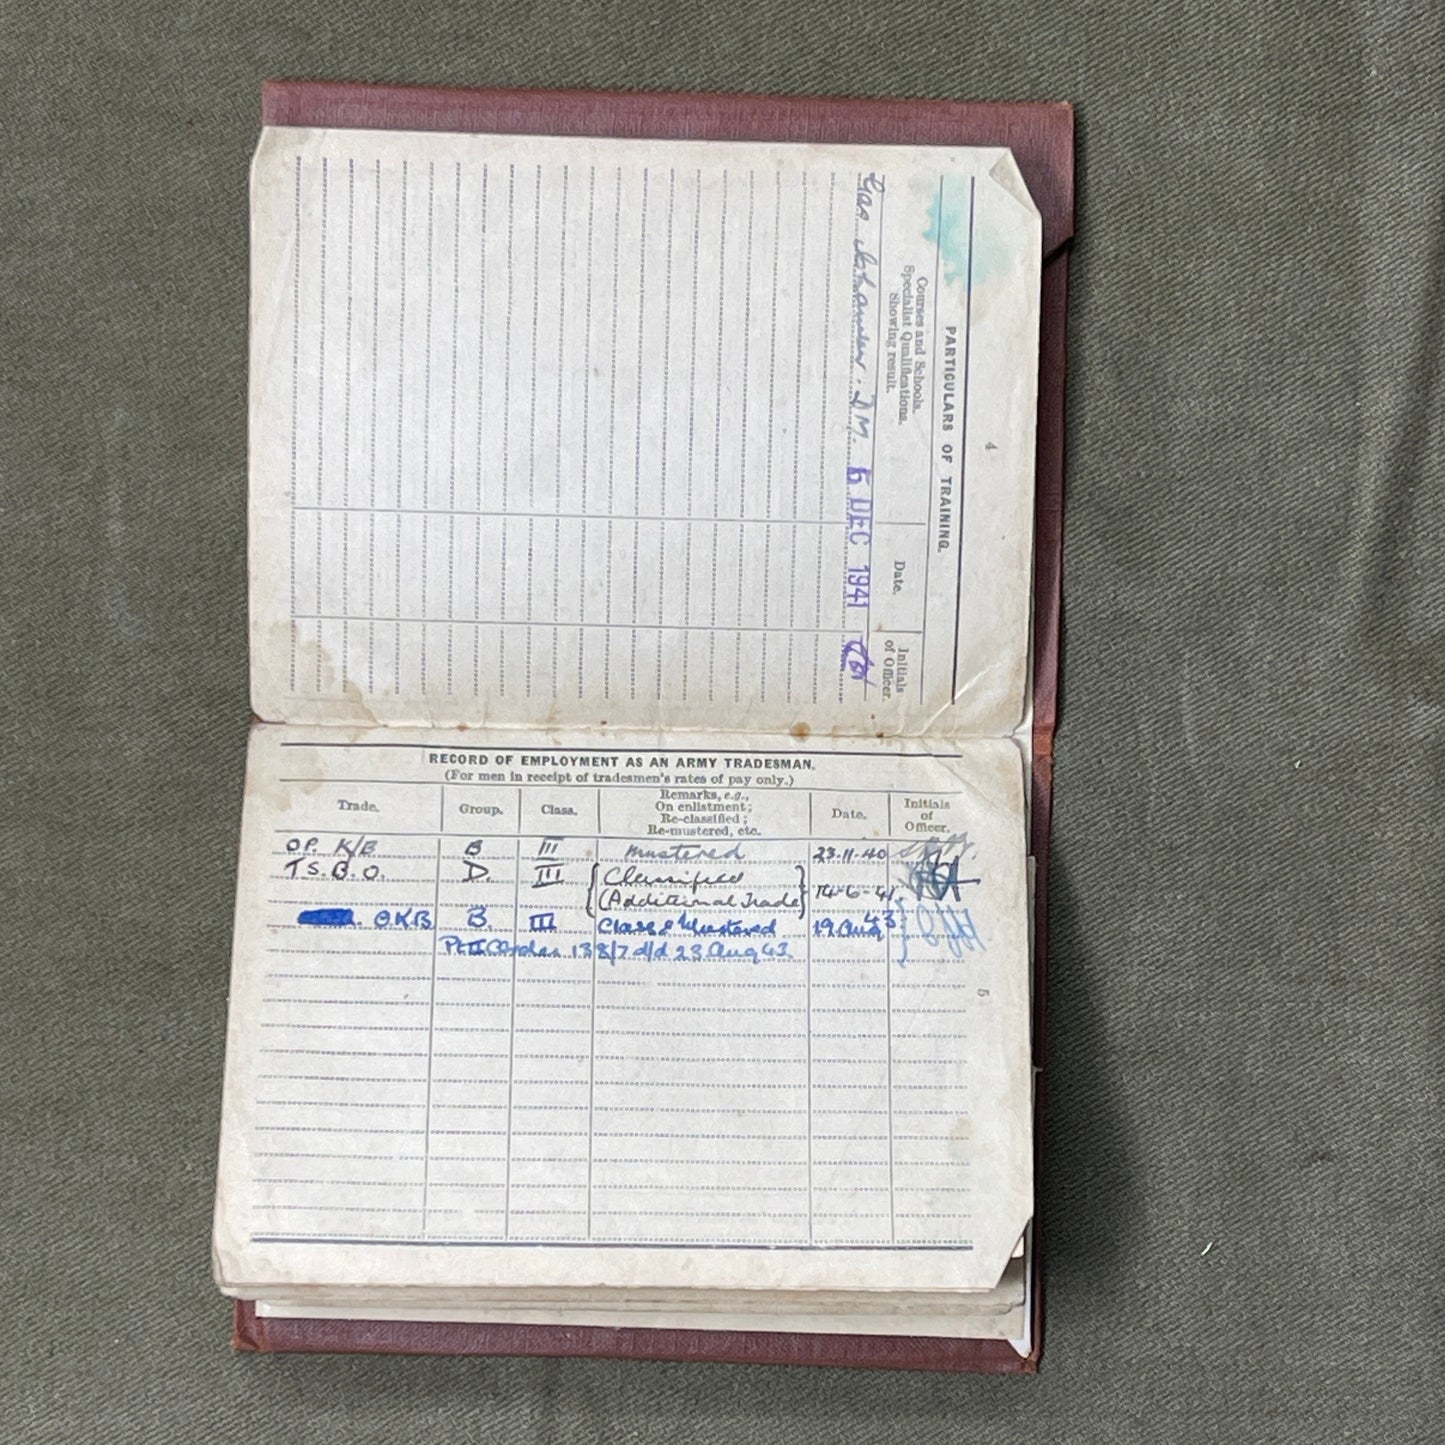 4
PARTICULARS OF TRAINING.
Courses and Schools.
Specialist Qualifications.
Showing result.
Date.
Initials
of Officer.
Gas D.M. 5 DEC 1941
RECORD OF EMPLOYMENT AS AN ARMY TRADESMAN.
(For men in receipt of tradesmen's rates of pay only.)
Trade.
Group.
Class.
Remarks, e.g.,
On enlistment;
Re-classified;
Re-mustered, etc.
Date.
Initials
of
Officer.
OP. K/B B III Mustered 23·11·40
T.S.B.O. D. III Classified
(Additional Trade) 14-6-41
O.K.B B. III Class & Mustered 19 Aug 43
Pt II Order 138/7 d/d 23 Aug 43.
5